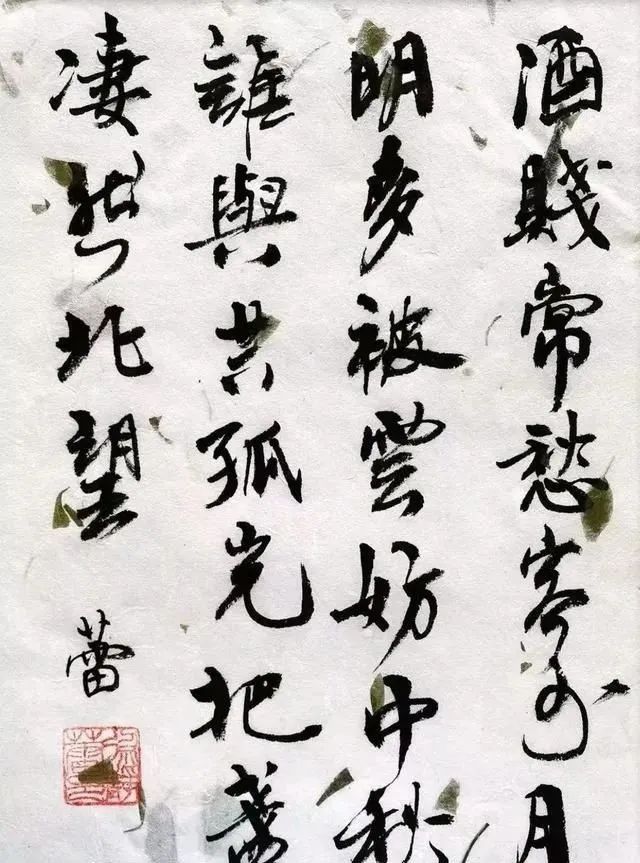 酒賤常愁客少月
明多被雲妨中秋
誰與共孤光把盞
凄然北望
蕾